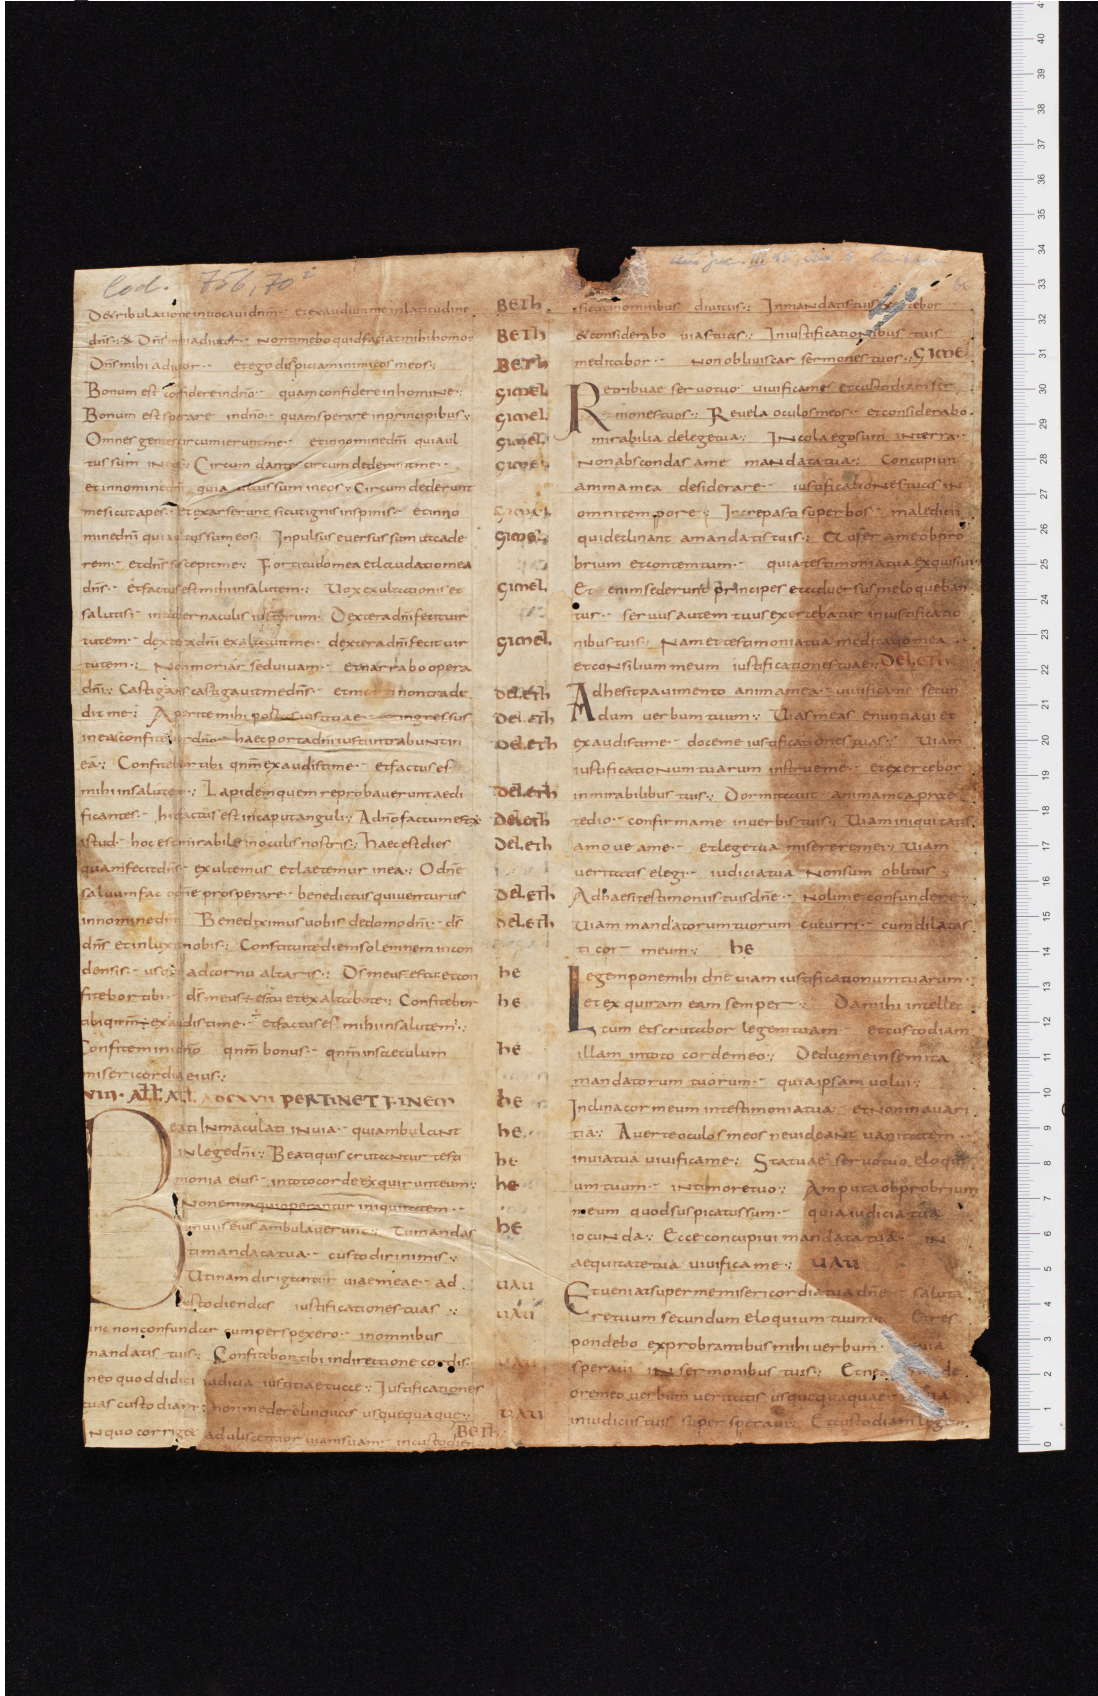 Cod. 756,70
De tribulatione invocavi dnm·- et exaudivit me in latitudine
dns·:· Dns mihi adiutor·- non timebo quid faciat mihi homo·
Dns mihi adiutor·- et ego dispiciam inimicos meos·:
Bonum est confidere in dno·- quam confidere in homine·:
Bonum est sperare in dno·- quam sperare in principibus·:
Omnes gentes circumierunt me·- et in nomine dni quia ul
tus sum in eos·: Circumdantes circumdederunt me·-
et in nomine dni quia ultus sum in eos·: Circumdederunt
me sicut apes·- et exarserunt sicut ignis in spinis·- et in no
mine dni quia ultus sum eos·: Inpulsus eversus sum ut cade
rem·- et dns suscepit me·: Fortitudo mea et laudatio mea
dns·- et factus est mihi in salutem·: Vox exultationis et
salutis·- in tabernaculis iustorum·: Dextera dni fecit vir
tutem·- dextera dni exaltavit me·- dextera dni fecit vir
tutem·: Non moriar sed vivam·- et narrabo opera
dni·: Castigans castigavit me dns·- et morti non tradi
dit me·: Aperite mihi portas iustitiae·- ingressus
in eas confitebor dno·- haec porta dni iusti intrabunt in
ea·: Confitebor tibi qnm exaudisti me·- et factus es
mihi in salutem·: Lapidem quem reprobaverunt aedi
ficantes·- hic factus est in caput anguli·: A dno factum est
istud·- hoc est mirabile in oculis nostris·: Haec est dies
quam fecit dns·- exultemus et laetemur in ea·: O dne
salvum fac o dne prosperare·- benedictus qui venturus
in nomine dni Benediximus vobis de domo dni·- ds
dns et inluxit nobis·: Constituite diem solemnem in con
densis·- usque ad cornu altaris·: Ds meus es tu et con
fitebor tibi·- ds meus es tu et exaltabo te·: Confitebor
tibi qnm exaudisti me·- et factus es mihi in salutem·:
Confitemini dno qnm bonus·- qnm in saeculum
misericordia eius·:
VIII· All All PERTINET FINEM
Beati inmaculati in via·- qui ambulant
in lege dni·: Beati qui scrutantur testi
monia eius·- in toto corde exquirunt eum·:
Non enim qui operantur iniquitatem·-
in viis eius ambulaverunt·: Tu mandas
ti mandata tua·- custodiri nimis·:
Utinam dirigantur viae meae·- ad
custodiendas iustificationes tuas·:
unc non confundar cum perspexero·- in omnibus
mandatis tuis·: Confitebor tibi in directione cordis·
neo quod didici iudicia iustitiae tuae·: Iustificationes
tuas custodiam·: non me derelinquas usquequaque·: BETH
n quo corrigit adulescentior viam suam·- in custodien
BETH
BETH
BETH
GIMEL
GIMEL
GIMEL
GIMEL
GIMEL
GIMEL
GIMEL
GIMEL
DELETH
DELETH
DELETH
DELETH
DELETH
DELETH
DELETH
DELETH
HE
HE
HE
HE
HE
HE
HE
HE
UAU
UAU
UAU
UAU
sicut in omnibus divitiis·: In mandatis tuis exercebor·
& considerabo vias tuas·: In iustificationibus tuis
meditabor·- non obliviscar sermones tuos·: GIMEL
Retribuae servo tuo vivifica me·- et custodiam ser
mones tuos·: Revela oculos meos·- et considerabo
mirabilia de lege tua·: Incola ego sum in terra·-
non abscondas a me mandata tua·: Concupivit
anima mea desiderare·- iustificationes tuas in
omni tempore·: Increpasti superbos·- maledicti
qui declinant a mandatis tuis·: Aufer a me obpro
brium et contemtum·- quia testimonia tua exquisivi·
Et enim sederunt principes et adversus me loqueban
tur·- servus autem tuus exercebatur in iustificatio
nibus tuis·: Nam et testimonia tua meditatio mea·-
et consilium meum iustificationes tuae·: DELETH
Adhesit pavimento anima mea·- vivifica me secun
dum verbum tuum·: Vias meas enuntiavi et
exaudisti me·- doce me iustificationes tuas·: Viam
iustificationum tuarum instrue me·- et exercebor
in mirabilibus tuis·: Dormitavit anima mea prae
tedio·- confirma me in verbis tuis·: Viam iniquitatis
amove a me·- et lege tua miserere mei·: Viam
veritatis elegi·- iudicia tua non sum oblitus·:
Adhaesi testimoniis tuis dne·- noli me confundere·:
Viam mandatorum tuorum cucurri·- cum dilatas
ti cor meum·: HE
Legem pone mihi dne viam iustificationum tuarum·-
et exquiram eam semper·: Da mihi intellec
tum et scrutabor legem tuam·- et custodiam
illam in toto corde meo·: Deduc me in semita
mandatorum tuorum·- quia ipsam volui·:
Inclina cor meum in testimonia tua·- et non in avari
tia·: Averte oculos meos ne videant vanitatem
in via tua vivifica me·: Statuae servo tuo eloqui
um tuum·- in timore tuo·: Amputa obprobrium
meum quod suspicatus sum·- quia iudicia tua
iocunda·: Ecce concupivi mandata tua·- in
aequitate tua vivifica me·: UAU
Et veniat super me misericordia tua dne·- saluta
re tuum secundum eloquium tuum·: Et res
pondebo exprobrantibus mihi verbum·- quia
speravi in sermonibus tuis·: Et ne de
ore meo verbum veritatis usquequaque·- quia
in iudiciis tuis supersperavi·: Et custodiam legem